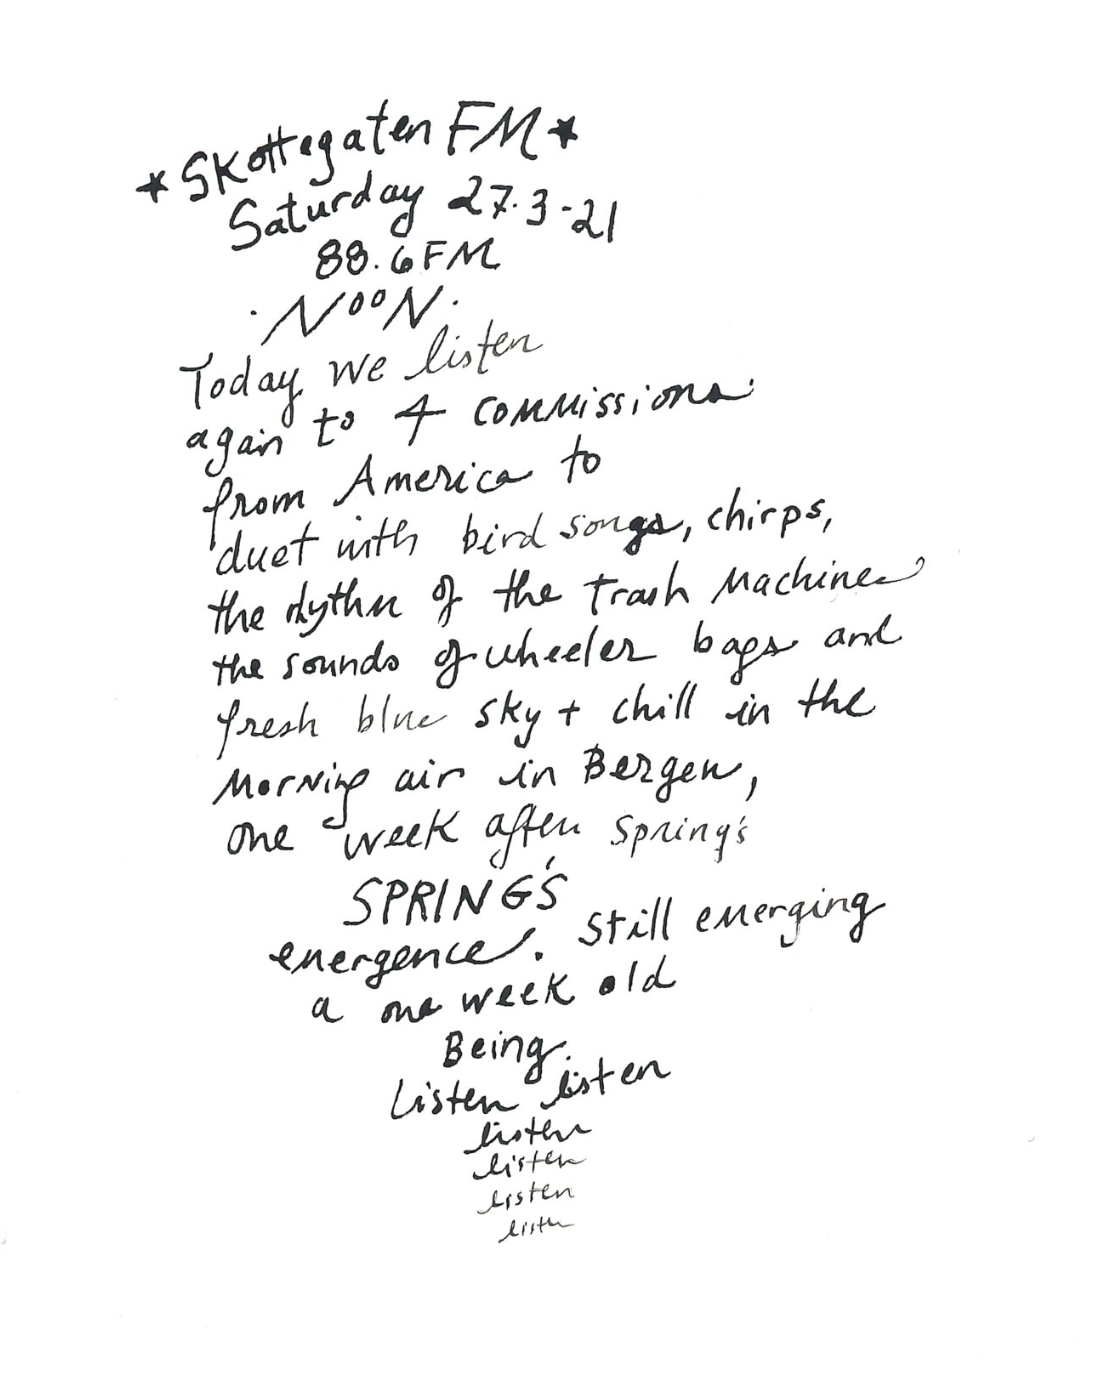 *Skottegaten FM*
Saturday 27.3-21
88.6 FM
.NooN.
Today we listen
again to 4 commissions
from America to
duet with bird songs, chirps,
the rhythm of the trash machine
the sounds of wheeler bags and
fresh blue sky + chill in the
Morning air in Bergen,
one week after Spring's
SPRING'S
emergence. Still emerging
a one week old
Being.
Listen listen
listen
listen
listen
listen